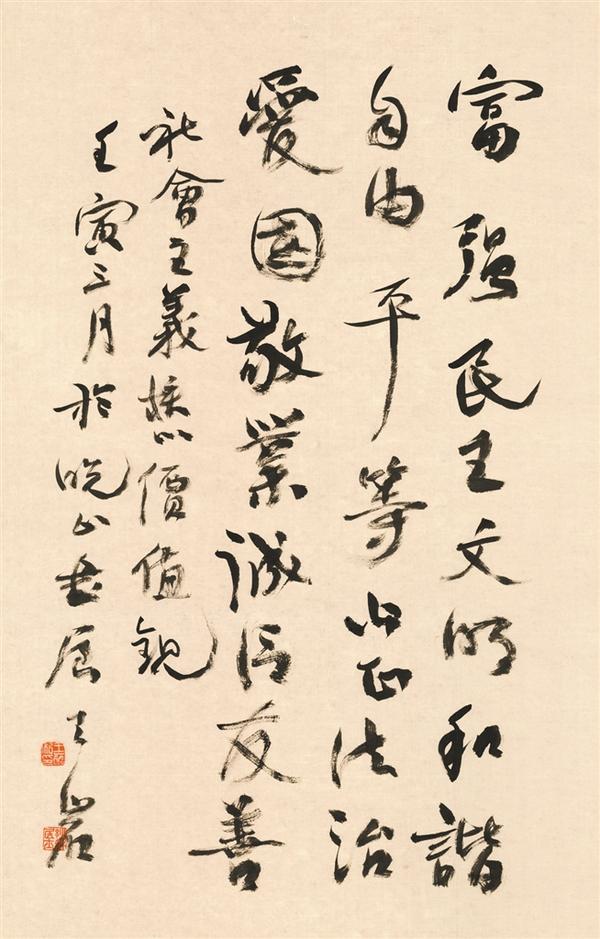 富强民主文明和諧
自由平等公正法治
愛國敬業誠信友善
社會主義核心價值觀
壬寅三月於山書屋王岩